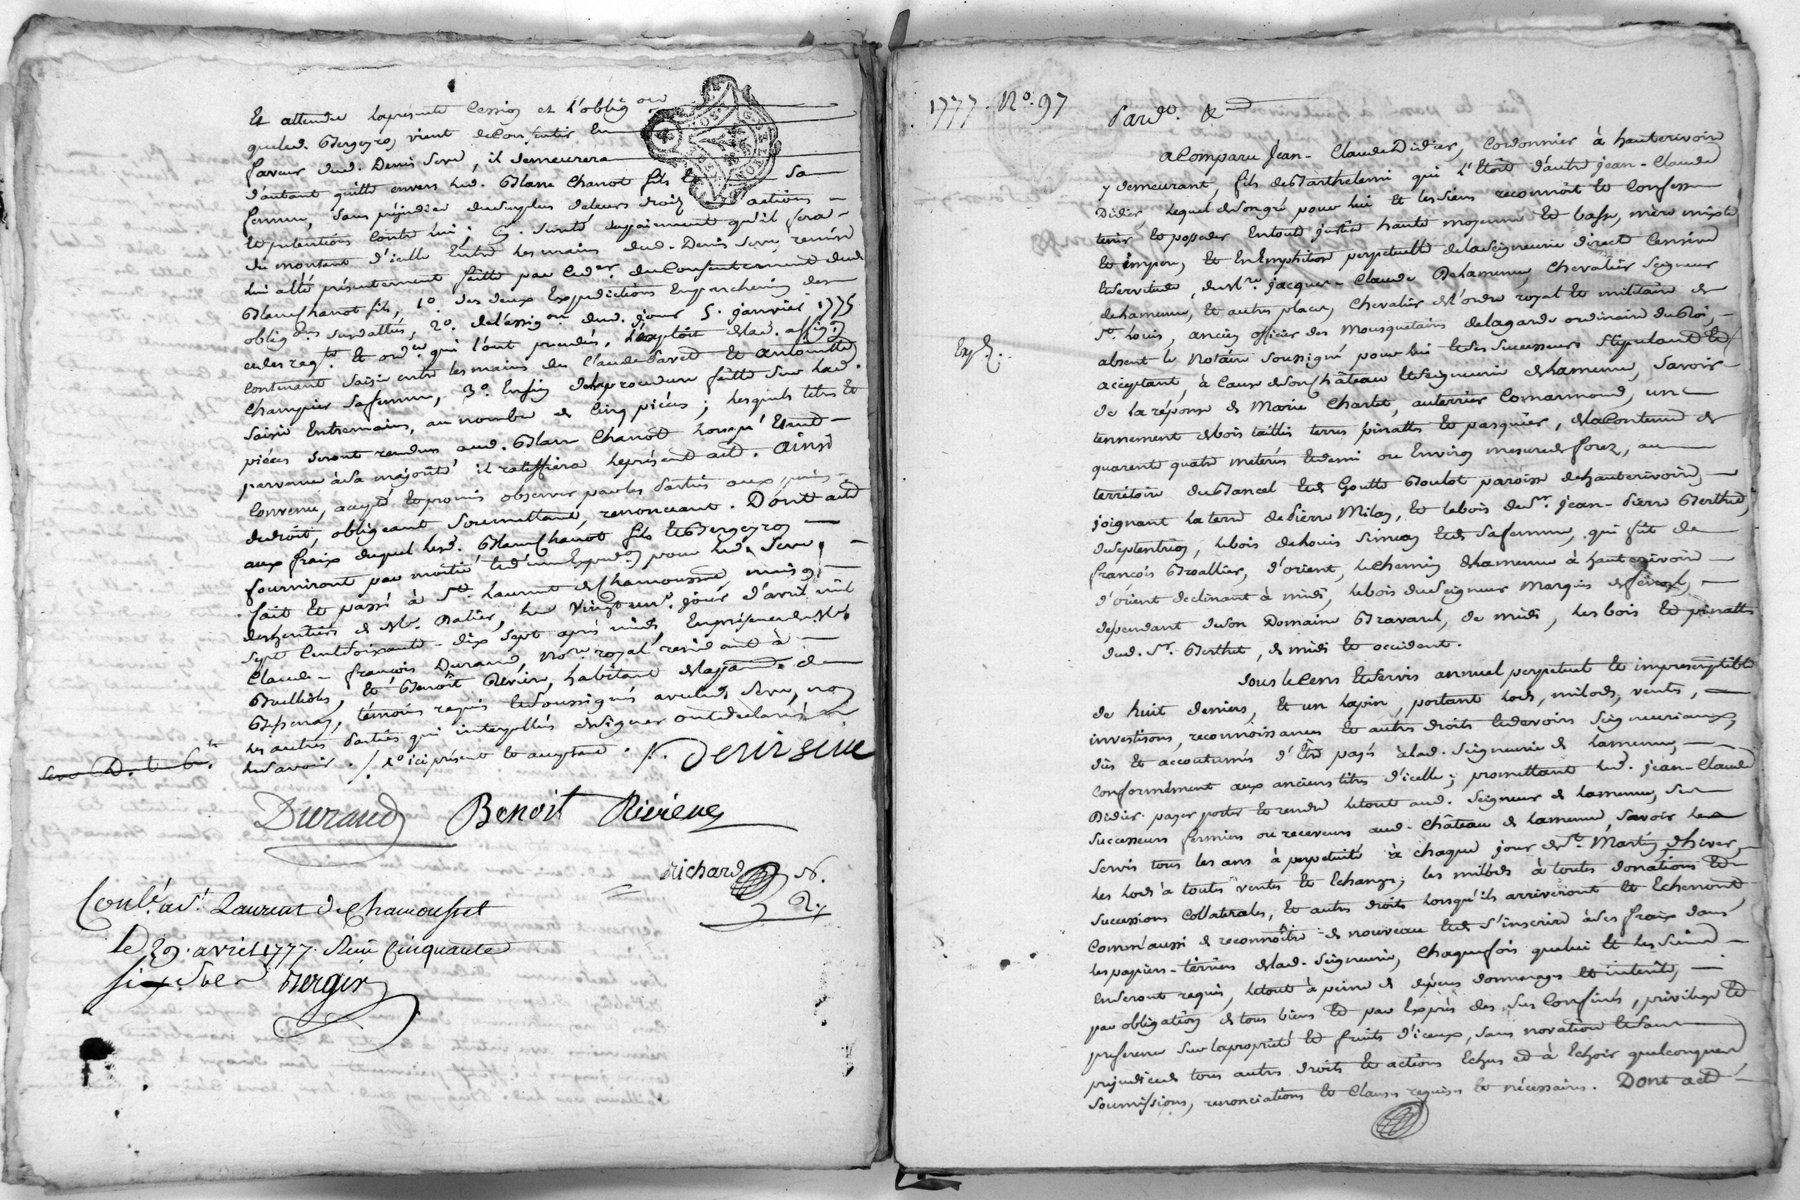 Et attendu laprésente Cession et l'oblig.on
queled. Bergeron vient deConsentir En
faveur dud. Denis Serve, il demeurera
d'autant quitte envers led. Blanc Chanot fils Et sa
femme, sans préjudice dusurplus deleurs droits actions
et prétentions Contre lui; S. sureté dupaiement qu'il fera
du montant d'icelle Entre les mains dud. Denis Serve, remise
lui aété présentement faitte par led. du Consentement dud.
Blanc Chanot fils, 1°. des deux Expeditions En parchemin des
oblig.ons susdattées, 2°. dud. jour 5. janvier 1775
et ord.ce qui l'ont précédés, l'exploit delad.
contenant saisie entre les mains de Claude Pavet Et antoinette
Champier safemme, 3°. Enfin delaprocedure faitte sur lad.
saisie Entremains, au nombre de Cinq pièces; lesquels titres Et
pièces seront rendus aud. Blanc Chanot lorsqu'Etant
parvenu àsa majorité il ratiffiera leprésent acte. Ainsi
Convenu, accepté Et promis observer par les Parties aux peines
dedroit, obligeant Soumettant, renonceant. Dont acte
aux fraix duquel lesd. Blanc Chanot fils Et Bergeron
fourniront par moitié pour led. Serve
fait Et passé à St. Laurent de Chamousset, maison
desheritiers de Me. Balier, le Vingt un.e jour d'avril mil
Sept Cent Soixante-dix Sept après midi Enprésence de Me.
Claude-François Durand, No.re royal residant à
Brullioles, Et Benoît Rivière, habitant delaparoisse de
Bessenay, témoins requis Et Soussignés avec led. Serve, non
les autres Parties qui interpellés designer ontdeclaré ne
lesavoir. /. ici présent et acceptant. /. Denis serve
Serve D. L. G.
Durand Benoit Riviere
Richard N.
Conlé. a St. Laurent de Chamousset
le 29. avril 1777. Reçu Cinquante
six Sols Berger
1777. No. 97
Pard.o &
A Comparu Jean-Claude Didier, Cordonnier à hauterivoire
y demeurant, fils de Barthelemi qui l'Etoit d'autre jean-Claude
Didier lequel de Songré pour lui Et les siens reconnoit Et Confesse
tenir Et posseder Entoute justice haute moyenne Et basse, mère mixte
Et impere, Et En Emphitéose perpetuelle delaseigneurie directe Censive
Et servitude, de Mre. jacques-Claude Delamenue, Chevalier Seigneur
delamenue, et autres places, Chevalier del'ordre royal Et militaire de
St. Louis, ancien officier des Mousquetaires delagarde ordinaire duRoi,
absent le Notaire Soussigné pour lui Et ses Successeurs Stipulant Et
acceptant, à Cause deson Château Et Seigneurie delamenue, Savoir
de la réponse de Marie Charlet, auterrier Comarmond, un
tennement debois taillis terres pinattes Et pasquier, delaContenue de
quarente quatre meterées Et demi ou Environ mesure de forez, au
territoire du Bancel Et de Goutte Boulot paroisse dehauterivoire
joignant la terre de Pierre Milan, Et lebois du Sr. jean-Pierre Berthet,
duseptentrion, lebois de Louis Simon Et de Safemme, qui fût de
françois Broallier, d'orient, lechemin delamenue à hauterivoire
d'orient declinant à midi, lebois du Seigneur Marquis de
dependant deson Domaine Bravard, de midi, les bois Et pinattes
dud. Sr. Berthet, de midi Et occident.
Sous leCens Et Servis annuel perpetuel Et imprescriptible
de huit deniers, Et un lapin, portant lods, milods, ventes,
investisons, reconnoissances Et autres droits Et devoirs Seigneuriaux,
dûs Et accoutumés d'Etre payés àlad. Seigneurie de Lamenue,
Conformément aux anciens titres d'icelle; promettant led. jean-Claude
Didier payer porter Et rendre letout aud. Seigneur de Lamenue, Ses
Successeurs fermiers ou receveurs aud. Château de Lamenue, Savoir le
Servis tous les ans à perpetuité à chaque jour de St. Martin d'hiver,
les lods à toutes Ventes Et Echanges, les milods à toutes donations Et
Successions Collaterales, Et autres droits lorsqu'ils arriveront Et Echerront,
Comm'aussi de reconnoître de nouveau Et de S'inscrire àses fraix dans
les papiers-terriers delad. Seigneurie, Chaquefois quelui Et les Siens
Enseront requis, letout à peine de dépens dommages Et interêts,
par obligation de tous biens Et par Exprès des Sus Confinés, privilège Et
preference Sur lapropriété Et fruits d'iceux, Sans novation Et Sans
prejudice de tous autres droits Et actions Echus Et à Echoir quelconques
Soumissions, renonciations Et Clauses requises Et nécessaires. Dont acte